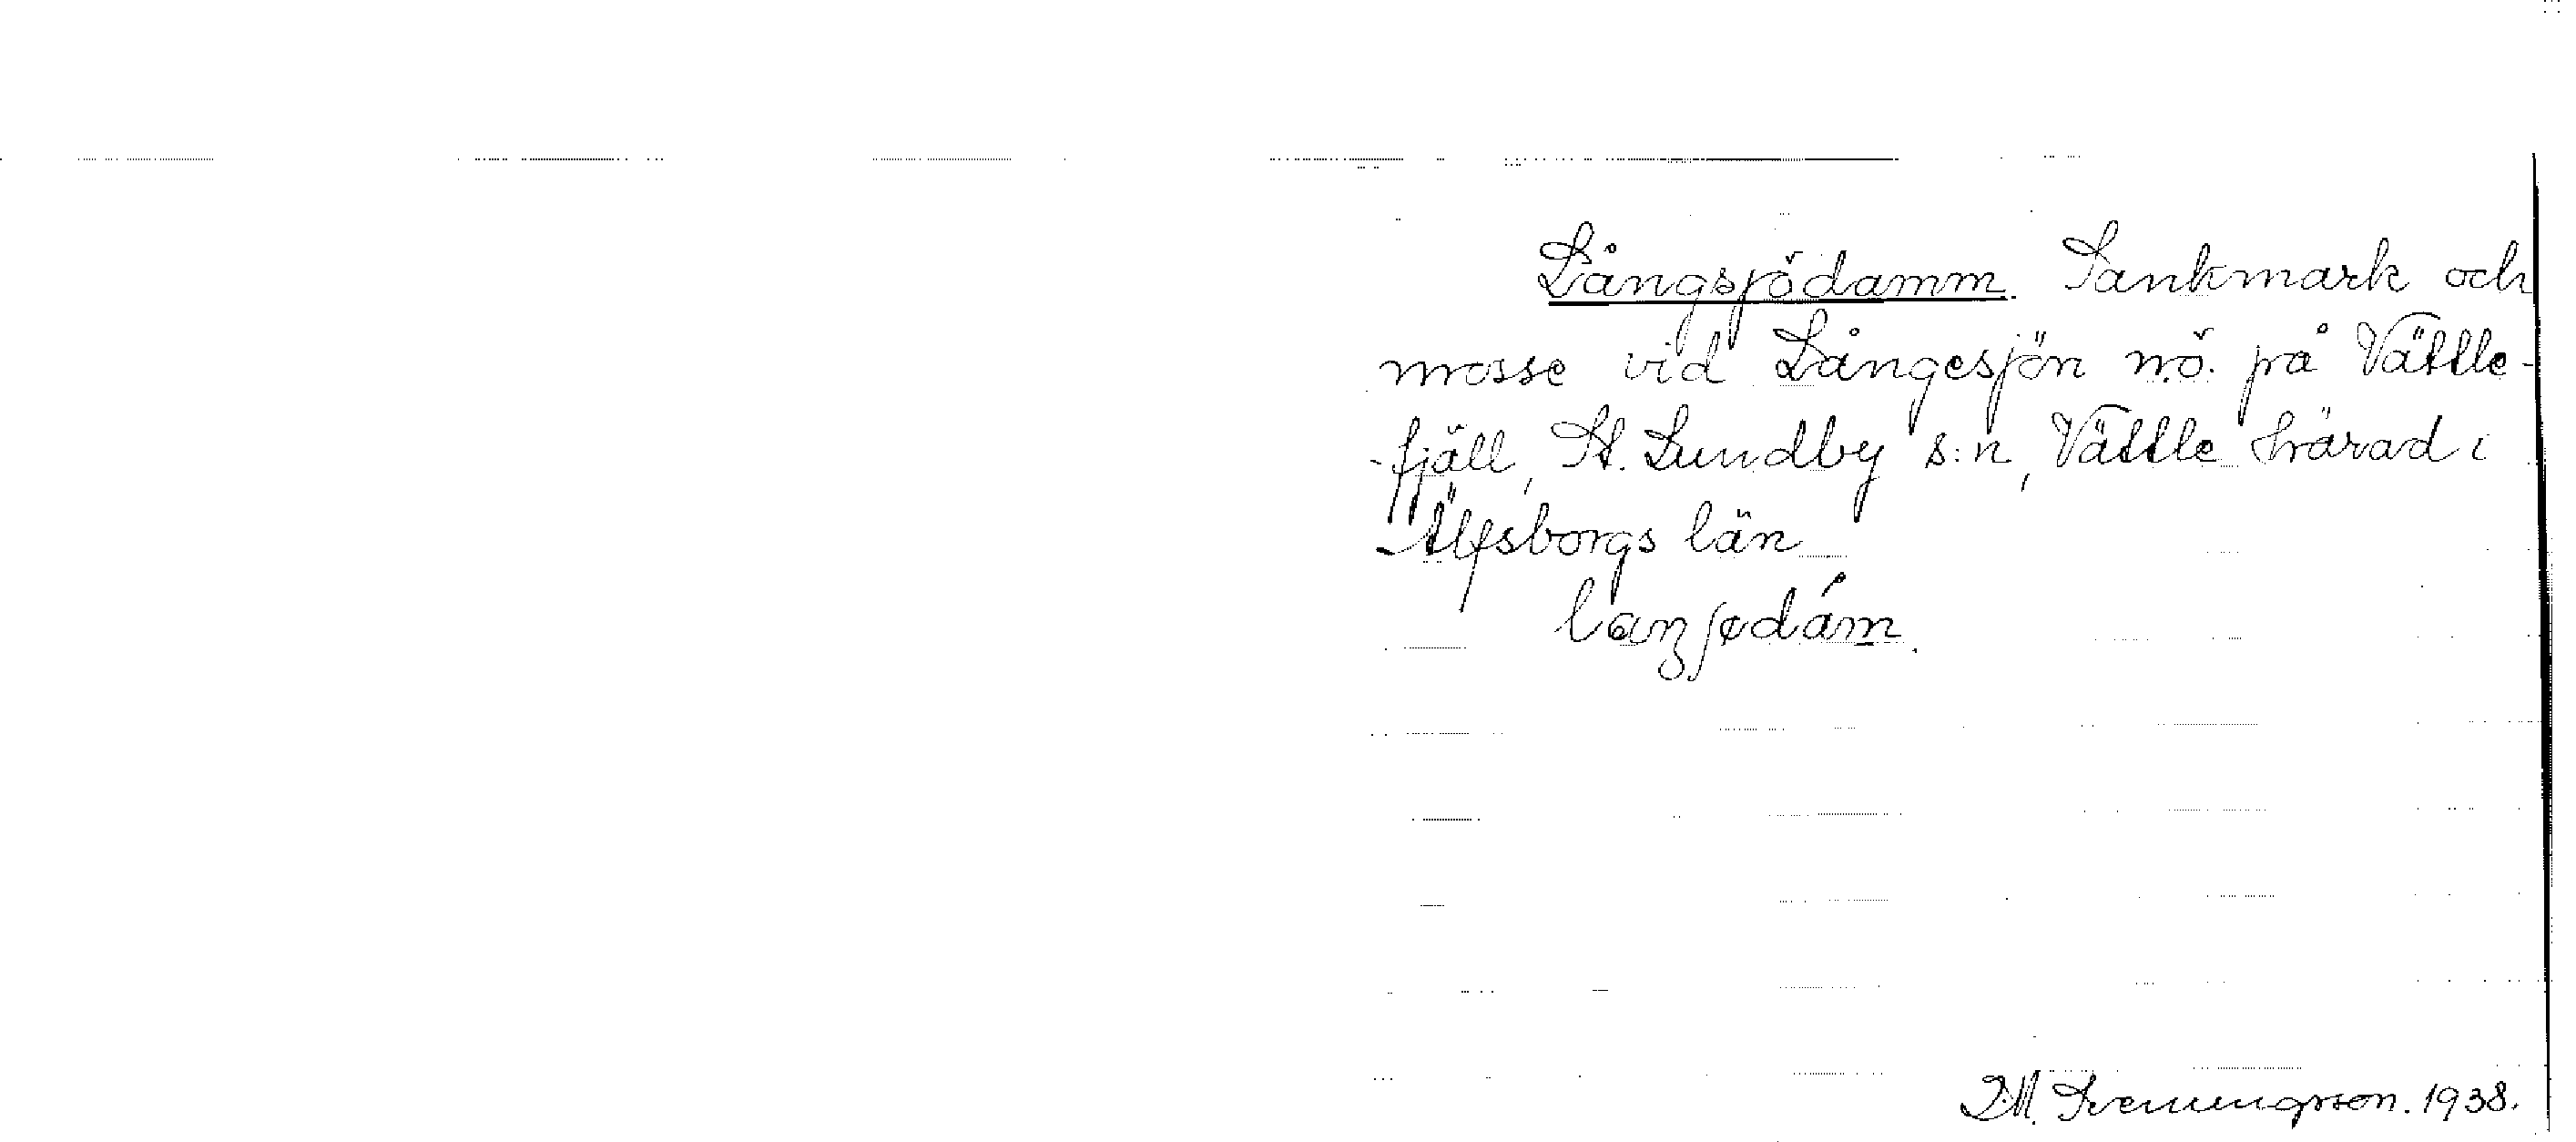 Långsjödamm. Sankmark och
mosse vid Långesjön nö. på Vättle-
-fjäll, St. Lundby s:n, Vättle härad i
Älfsborgs län
Svenungsson. 1938.